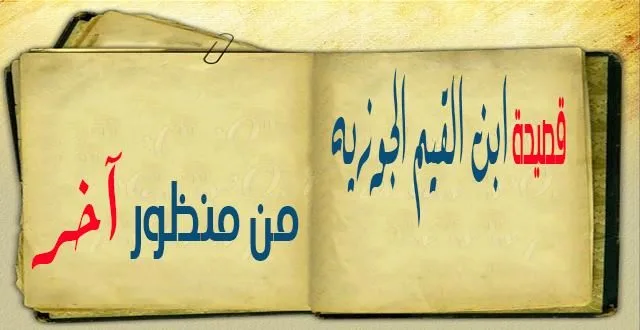 قصيدة ابن القيم الجوزيه
من منظور آخر